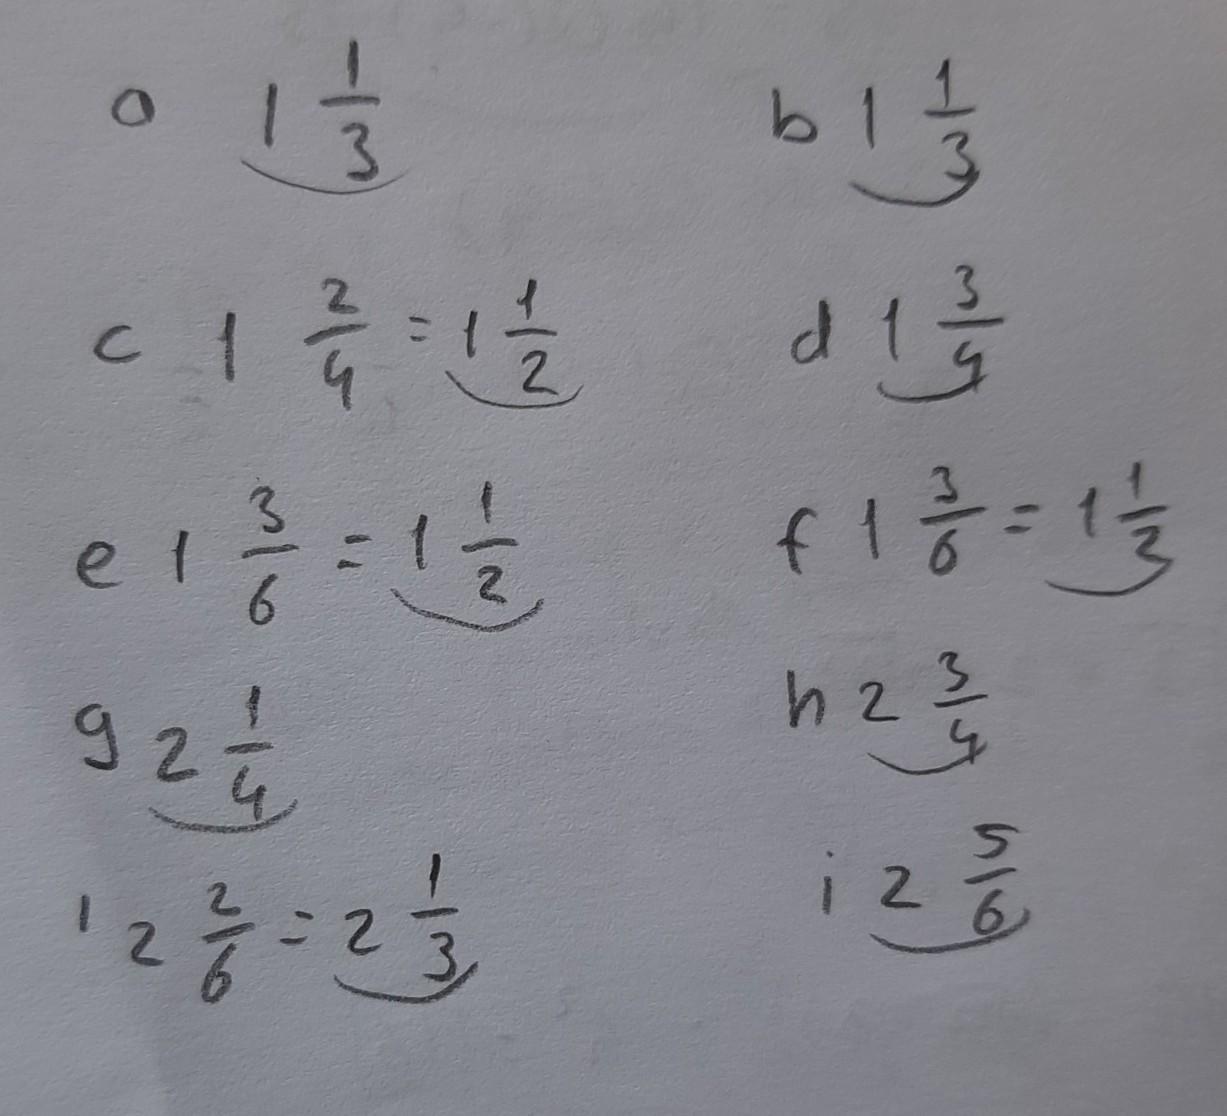 a 1 1/3 b 1 1/3
c 1 2/4 = 1 1/2 d 1 3/4
e 1 3/6 = 1 1/2 f 1 3/6 = 1 1/2
g 2 1/4 h 2 3/4
i 2 2/6 = 2 1/3 i 2 5/6